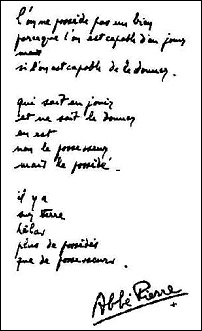 l'on ne possède pas un bien
parceque l'on est capable d'en jouir
mais
si l'on est capable de le donner.
qui sait en jouir
et ne sait le donner
en est
non le possesseur
mais le possédé.
il y a
sur terre
hélas
plus de possédés
que de possesseurs.
Abbé Pierre